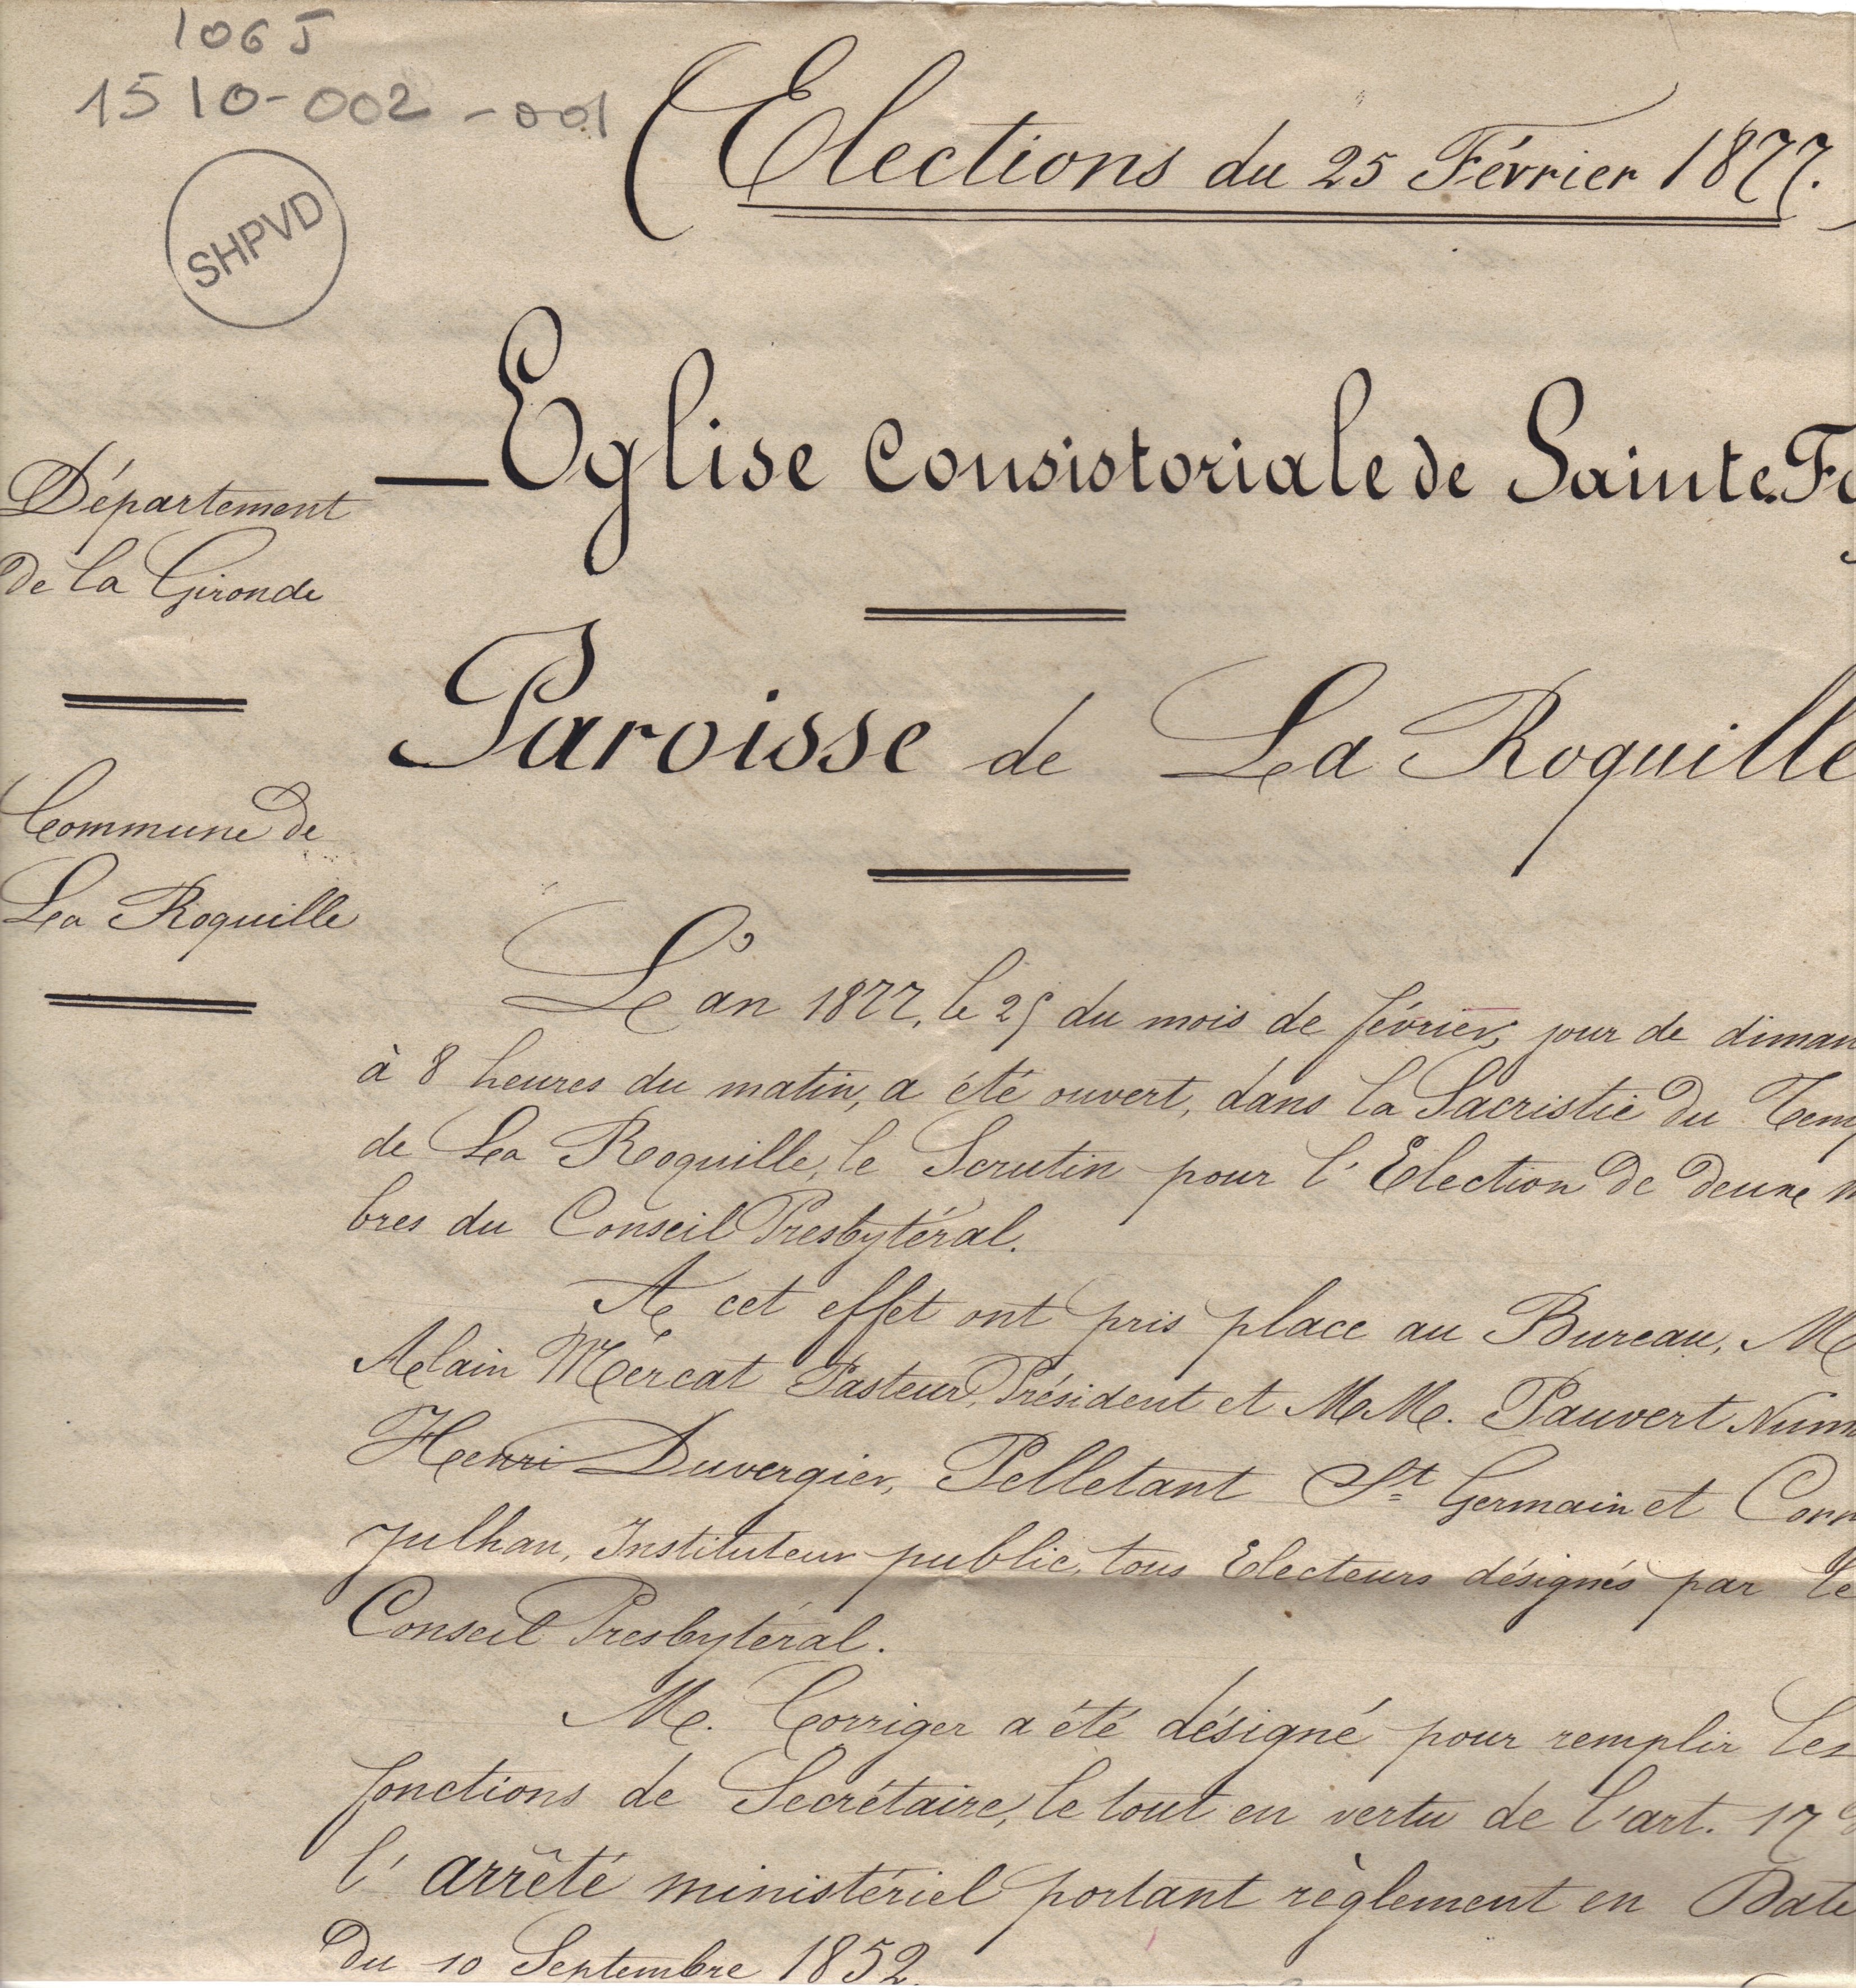 106 J
1510-002-001
SHPVD
(Elections du 25 Février 1877.)
Département
de la Gironde
Commune de
La Roquille
Eglise Consistoriale de Sainte Fo
Paroisse de La Roquille
L'an 1877, le 25 du mois de février, jour de diman
à 8 heures du matin, a été ouvert, dans la Sacristie du Temp
de La Roquille, le Scrutin pour l'Election de deux m
bres du Conseil Presbytéral.
A cet effet ont pris place au Bureau, M
Alain Mercat Pasteur, Président et M.M. Pauvert Num
Henri Duvergier, Pelletant St Germain et Corr
Julhan, Instituteur public, tous Electeurs désignés par le
Conseil Presbytéral.
M. Corriger a été désigné pour remplir les
fonctions de Secrétaire, le tout en vertu de l'art. 17
l'arrêté ministériel portant règlement en Date
Du 10 Septembre 1852.